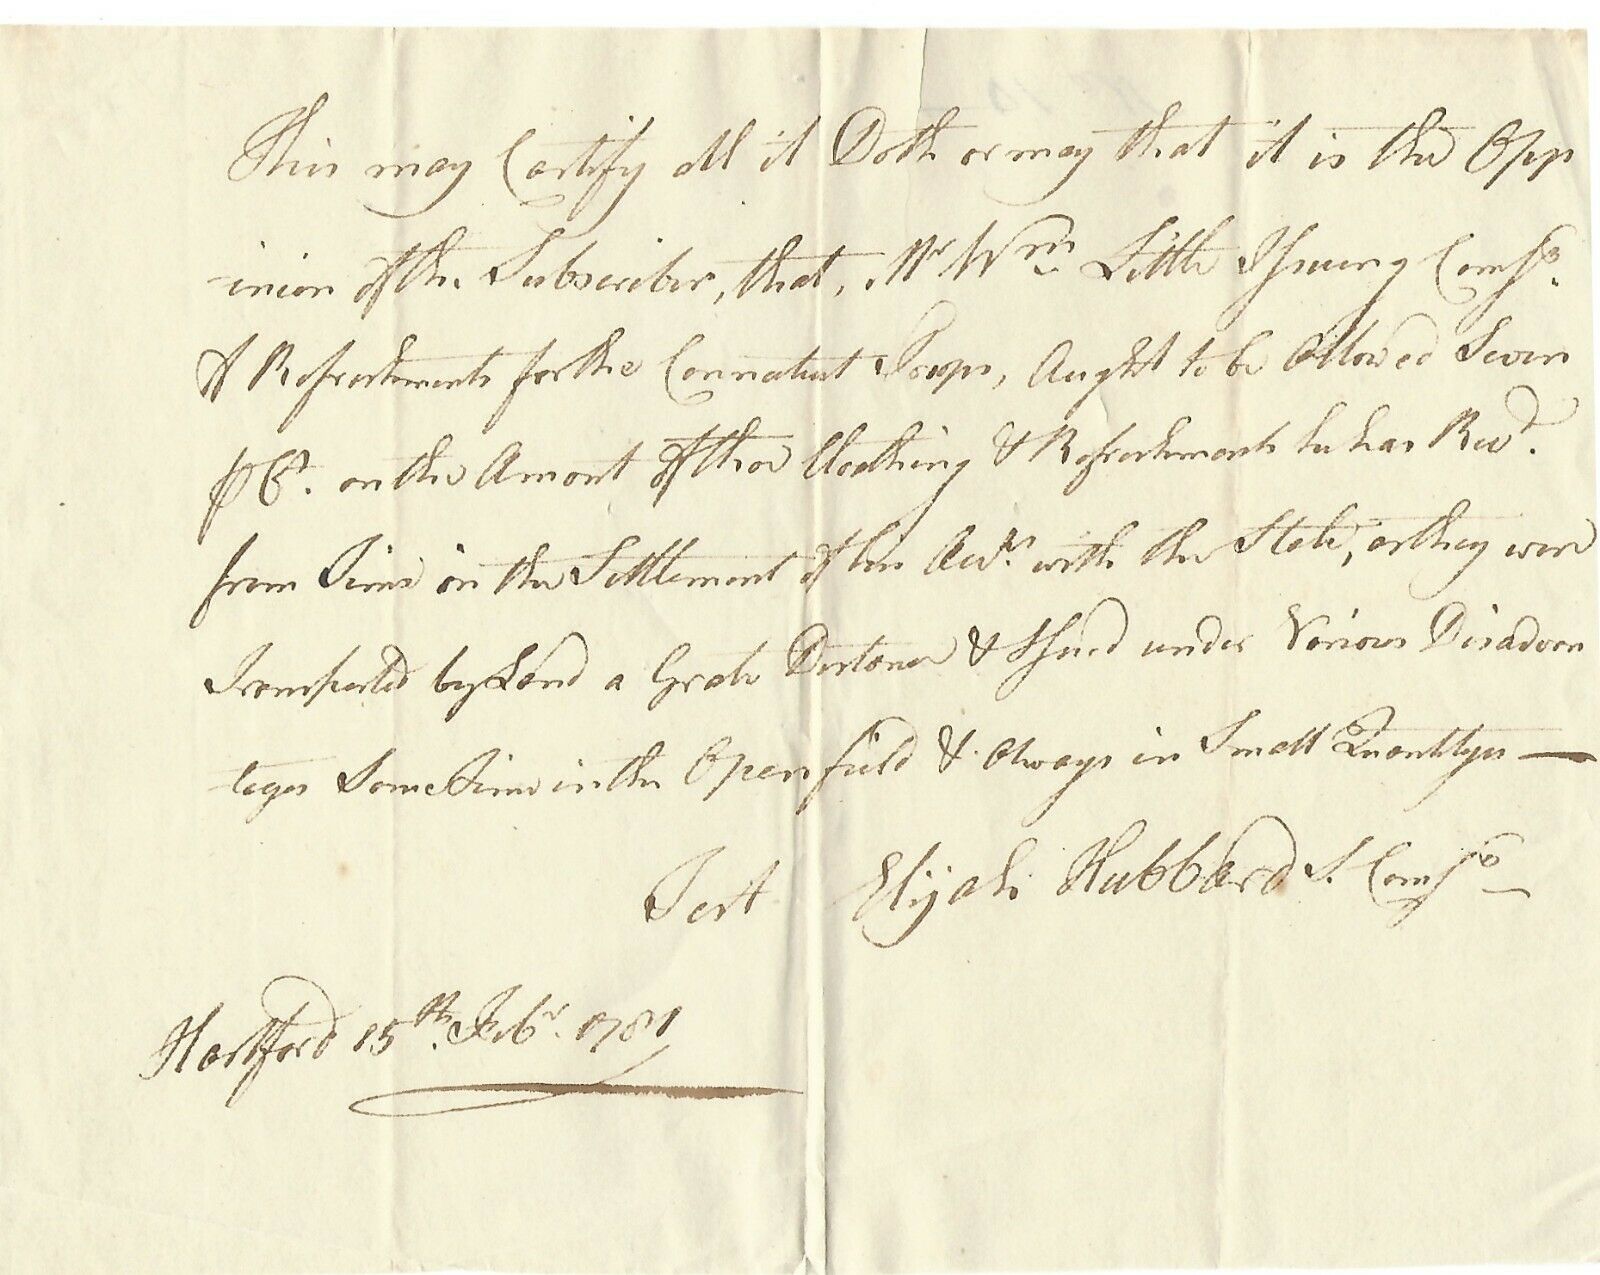 This may Certify all it Doth or may that it is the Opp
inion of the Subscriber, that, Mr Wm Little Issueing Comsy.
of Refreshments for the Connecticut Troops, Aught to be Allowed Seven
⅌ Ct. on the Amont of the Cloathing & Refreshments he has Recd.
from Time on the Settlement of his Acts. with the State, as they were
Transported by Land a Grate Distance & Issued under Various Disadvan
tages Some Time in the Open field & Always in Small Quantitys —
Test Elijah Hubbard S. Comsy
Hartford 15th. Febr. 1781